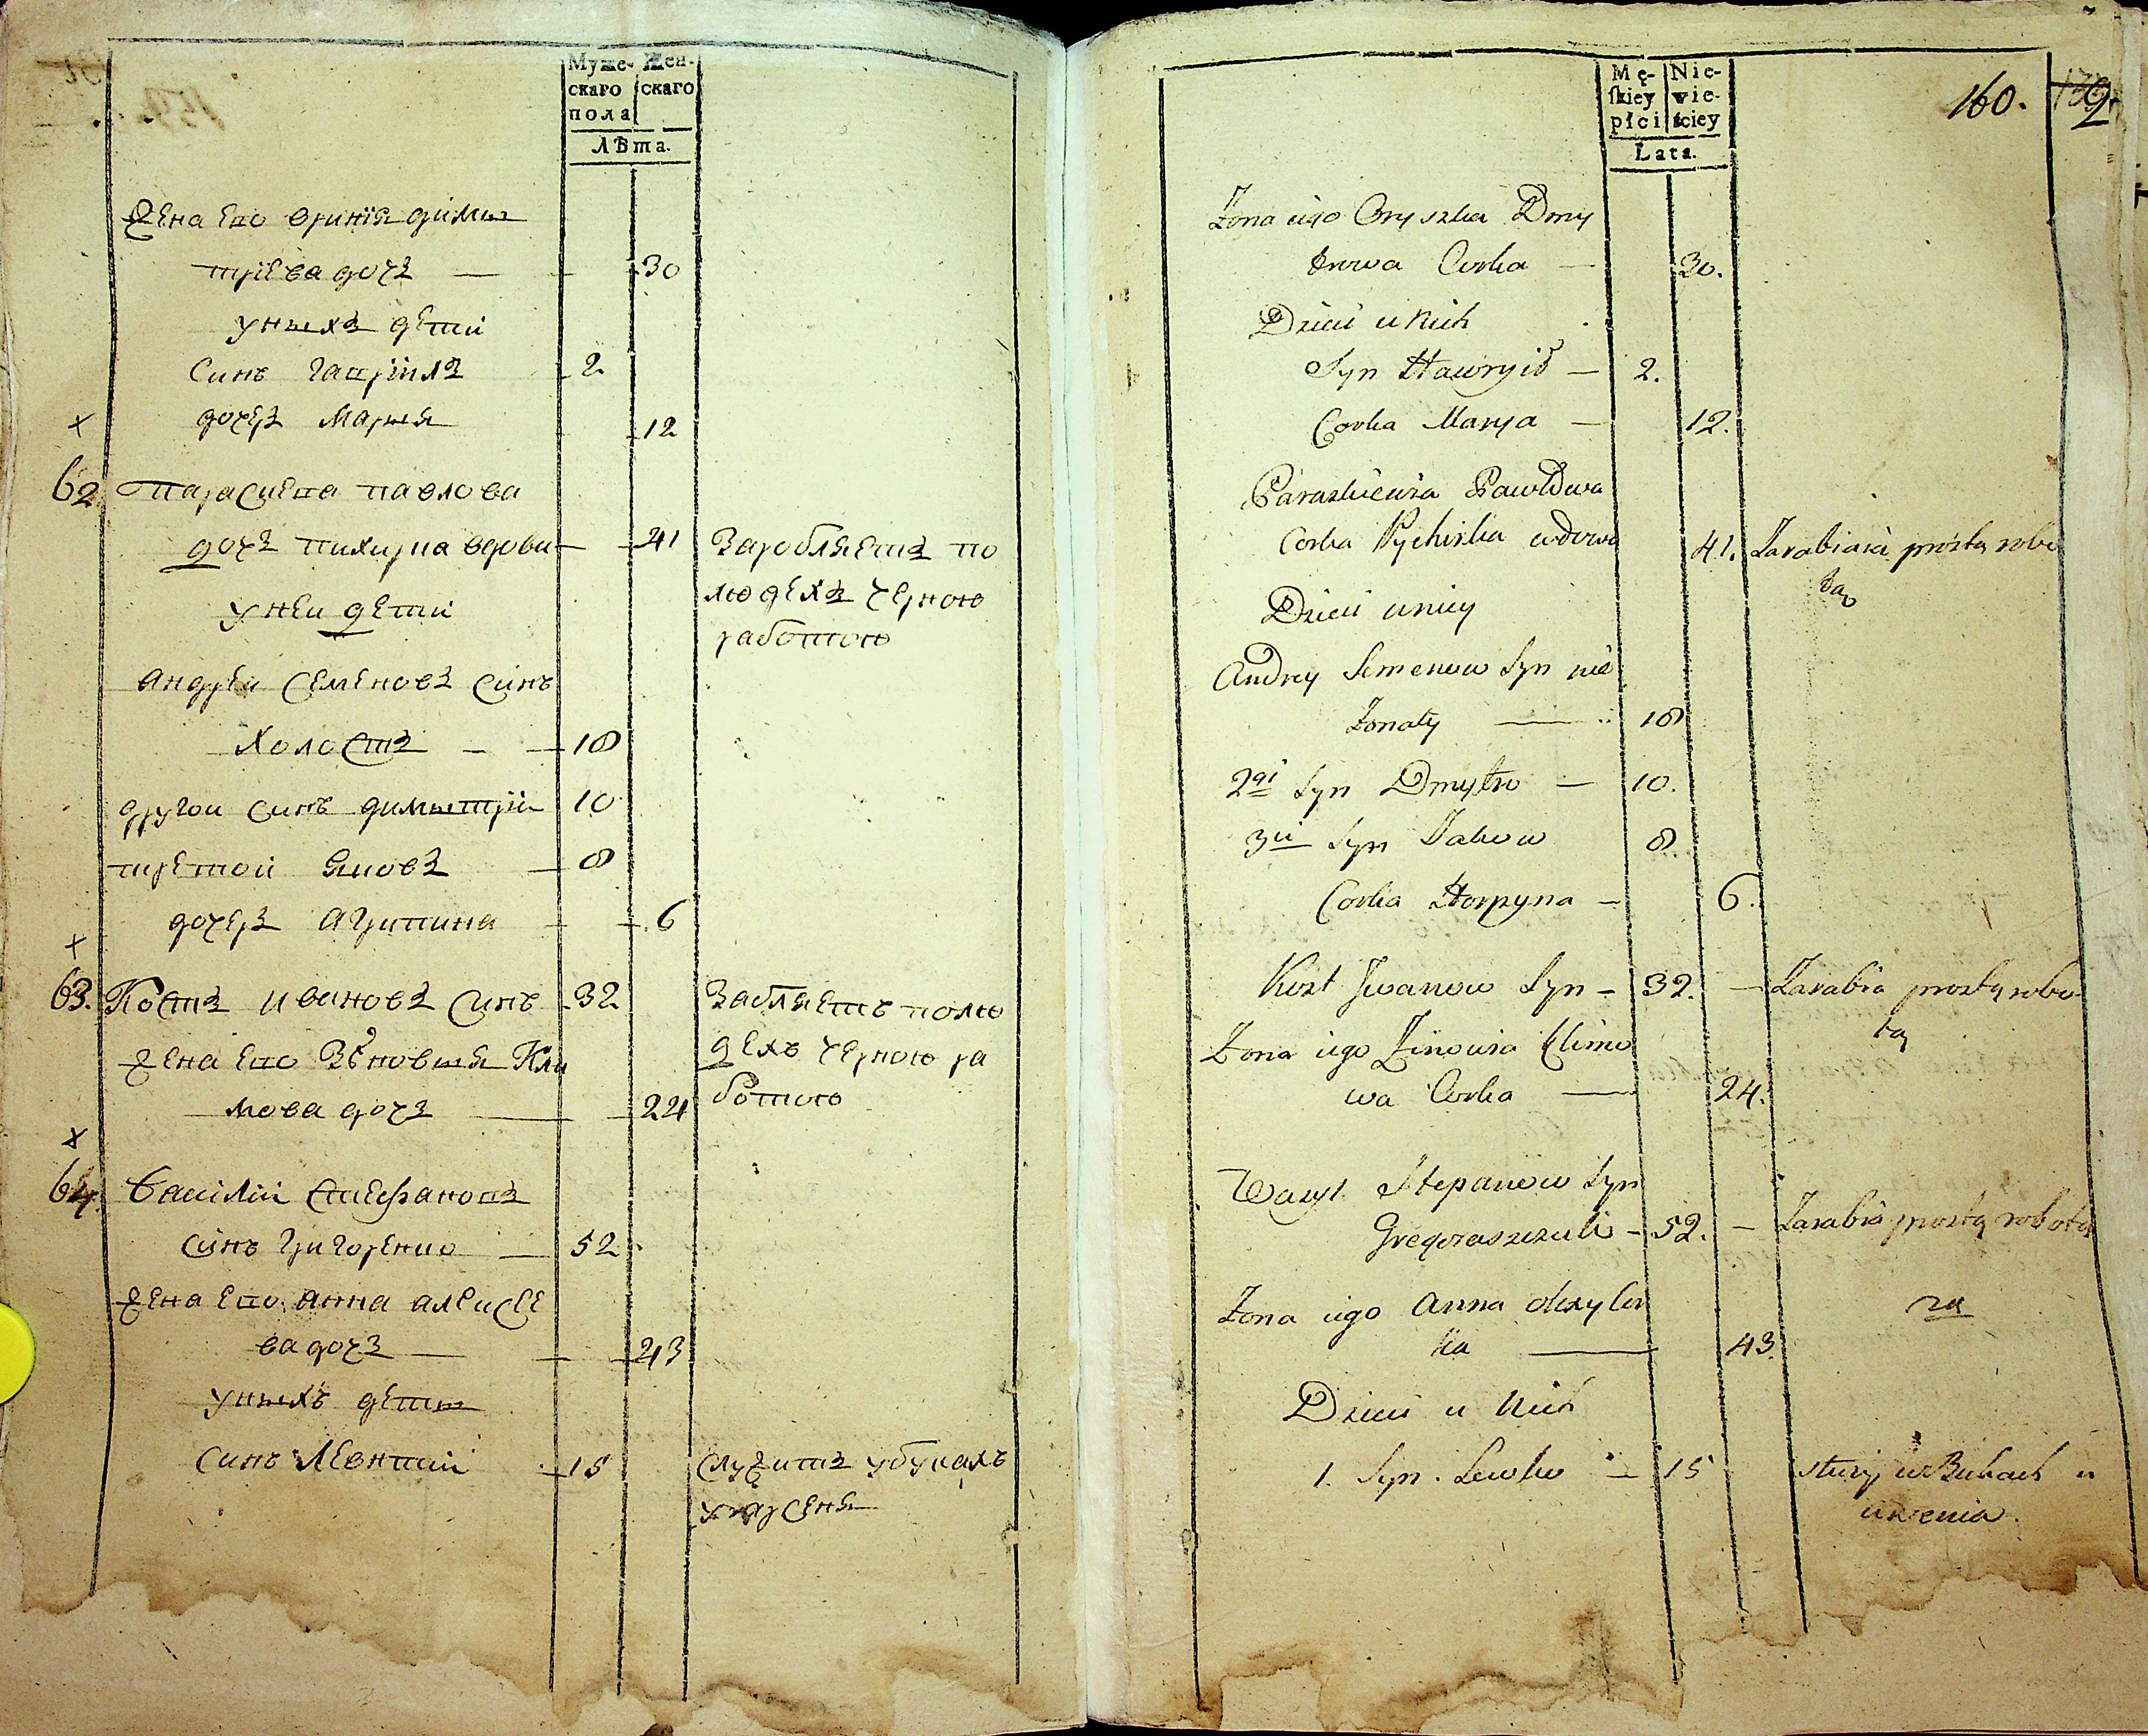 Муже- Жен-
скаго скаго
пола
Лѣта.
Жена его Оринія Дими
тріева дочъ — 30
у нихъ дети
Синъ Гавріилъ 2
дочеръ Марія 12
62 Параскева Павлова
дочъ Пихирка вдова — 41 Заробляетъ по
людехъ черною
работою
у неи дети
Андреи Семеновъ Синъ
холостъ — 18
другои Синъ Димитріи 10
третои Яковъ — 8
дочеръ Агрипина — 6
63. Костъ Ивановъ Синъ 32 Забляетъ по лю
дехъ черною ра
ботою
Жена его Зѣновия Кли
мова дочъ — 24
64. Василіи Стефановъ
Синъ Григоренко — 52
Жена его Анна Алексее
ва дочъ — 43
у нихъ дети
Синъ Левнтии 15 служитъ у букахъ
Mę- Nie-
ſkiey wie-
płci ściey
Lata.
160.
Zona iego Oryszka Dmy
trowa Corka — 30.
Dzieci u Nich
Syn Hawryło — 2.
Corka Marya — 12.
Paraskiewia Pawłowa
Corka Pychirka wdowa 41. Zarabiaią prostą robo
tą
Dzieci u niey
Andrey Semenow Syn nie
Zonaty — 18
2gi Syn Dmytro — 10.
3ci Syn Jakow 8.
Corka Horpyna — 6.
Kost Jwanow Syn — 32. — Zarabia prostą robo
tą
Zona iego Zinowia Klimo
wa Corka — 24.
Wasyl Stepanow Syn
Gregoraszczuk — 52. — Zarabia prostą robotą
Zona iego Anna
ka — 43.
Dzieci u Nich
1. Syn Lewko — 15 służy w Bukach u